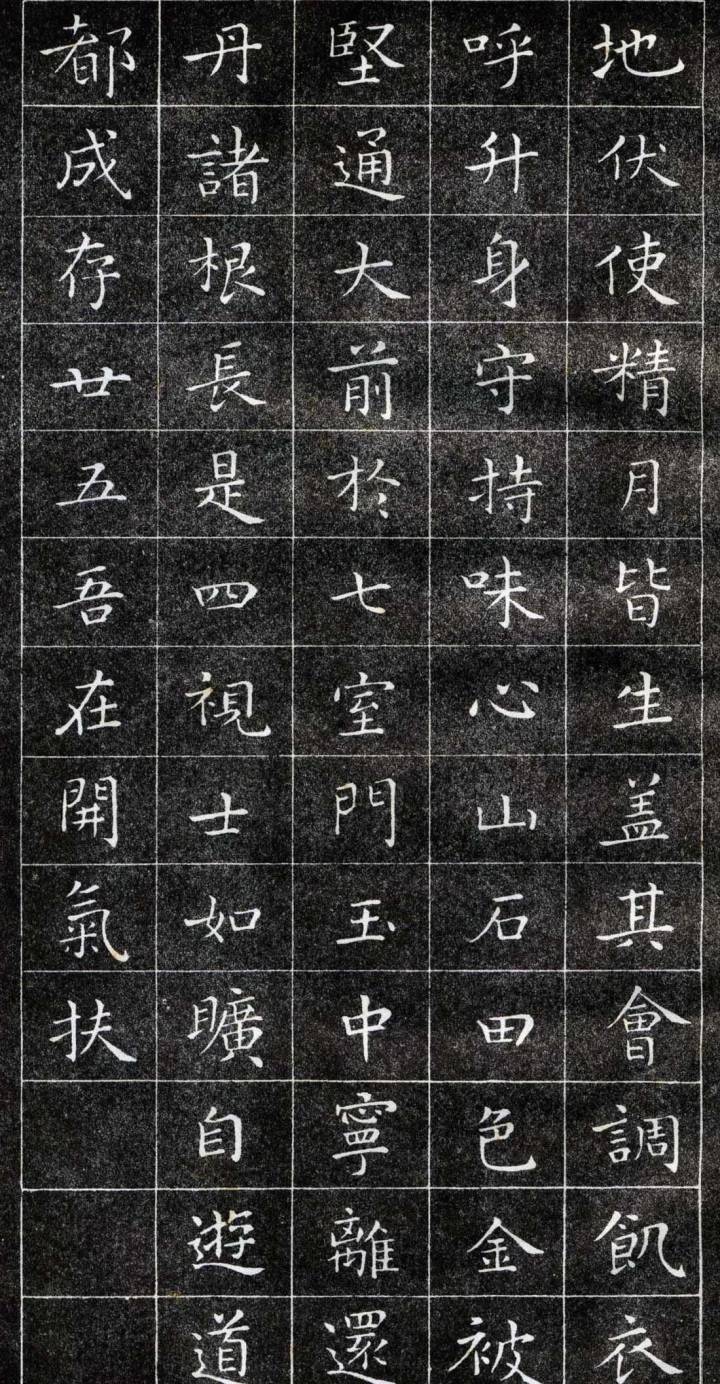 地伏使精月皆生盖其會調飢衣
呼升身守持味心山石田色金被
堅通大前於七室門玉中寧離還
丹諸根長是四視士如曠自遊道
都成存廿五吾在開氣扶